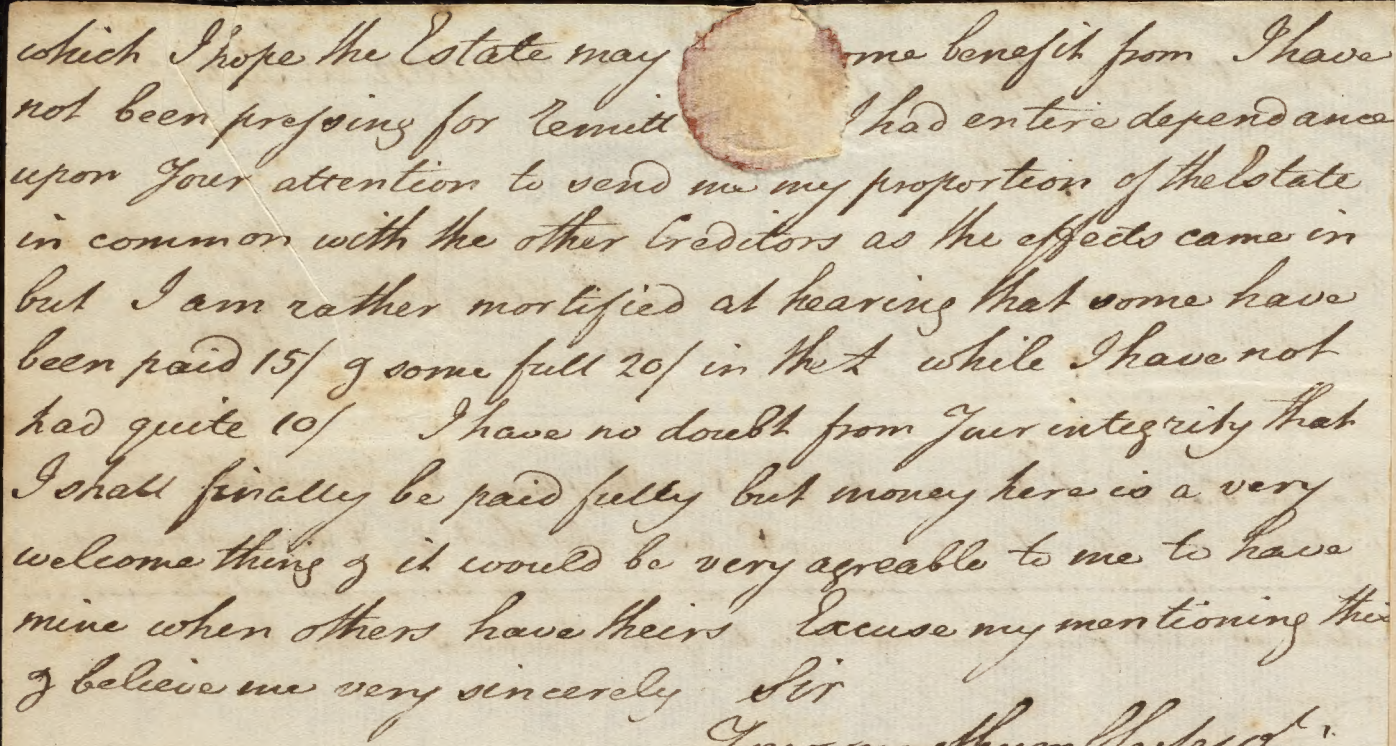 which I hope the Estate may me benefit from I have
not been pressing for remitt I had entire dependance
upon Your attention to send me my proportion of the Estate
in common with the other Creditors as the effects came in
but I am rather mortified at hearing that some have
been paid 15/ & some full 20/ in the £ while I have not
had quite 10/ I have no doubt from Your integrity that
I shall finally be paid fully but money here is a very
welcome thing & it would be very agreable to me to have
mine when others have theirs Excuse my mentioning this
& believe me very sincerely Sir